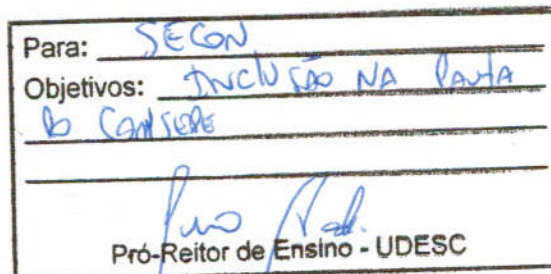 Para: SECON
Objetivos: INCLUSÃO NA PAUTA
DO CONSEPE
Pró-Reitor de Ensino - UDESC